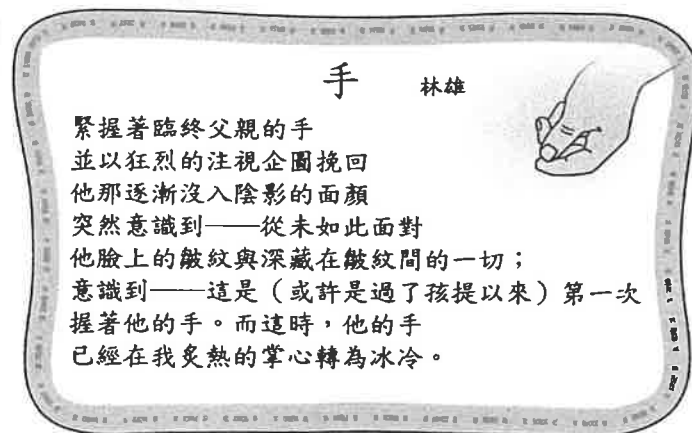 手 林雄
緊握著臨終父親的手
並以狂烈的注視企圖挽回
他那逐漸沒入陰影的面顏
突然意識到——從未如此面對
他臉上的皺紋與深藏在皺紋間的一切；
意識到——這是（或許是過了孩提以來）第一次
握著他的手。而這時，他的手
已經在我炙熱的掌心轉為冰冷。